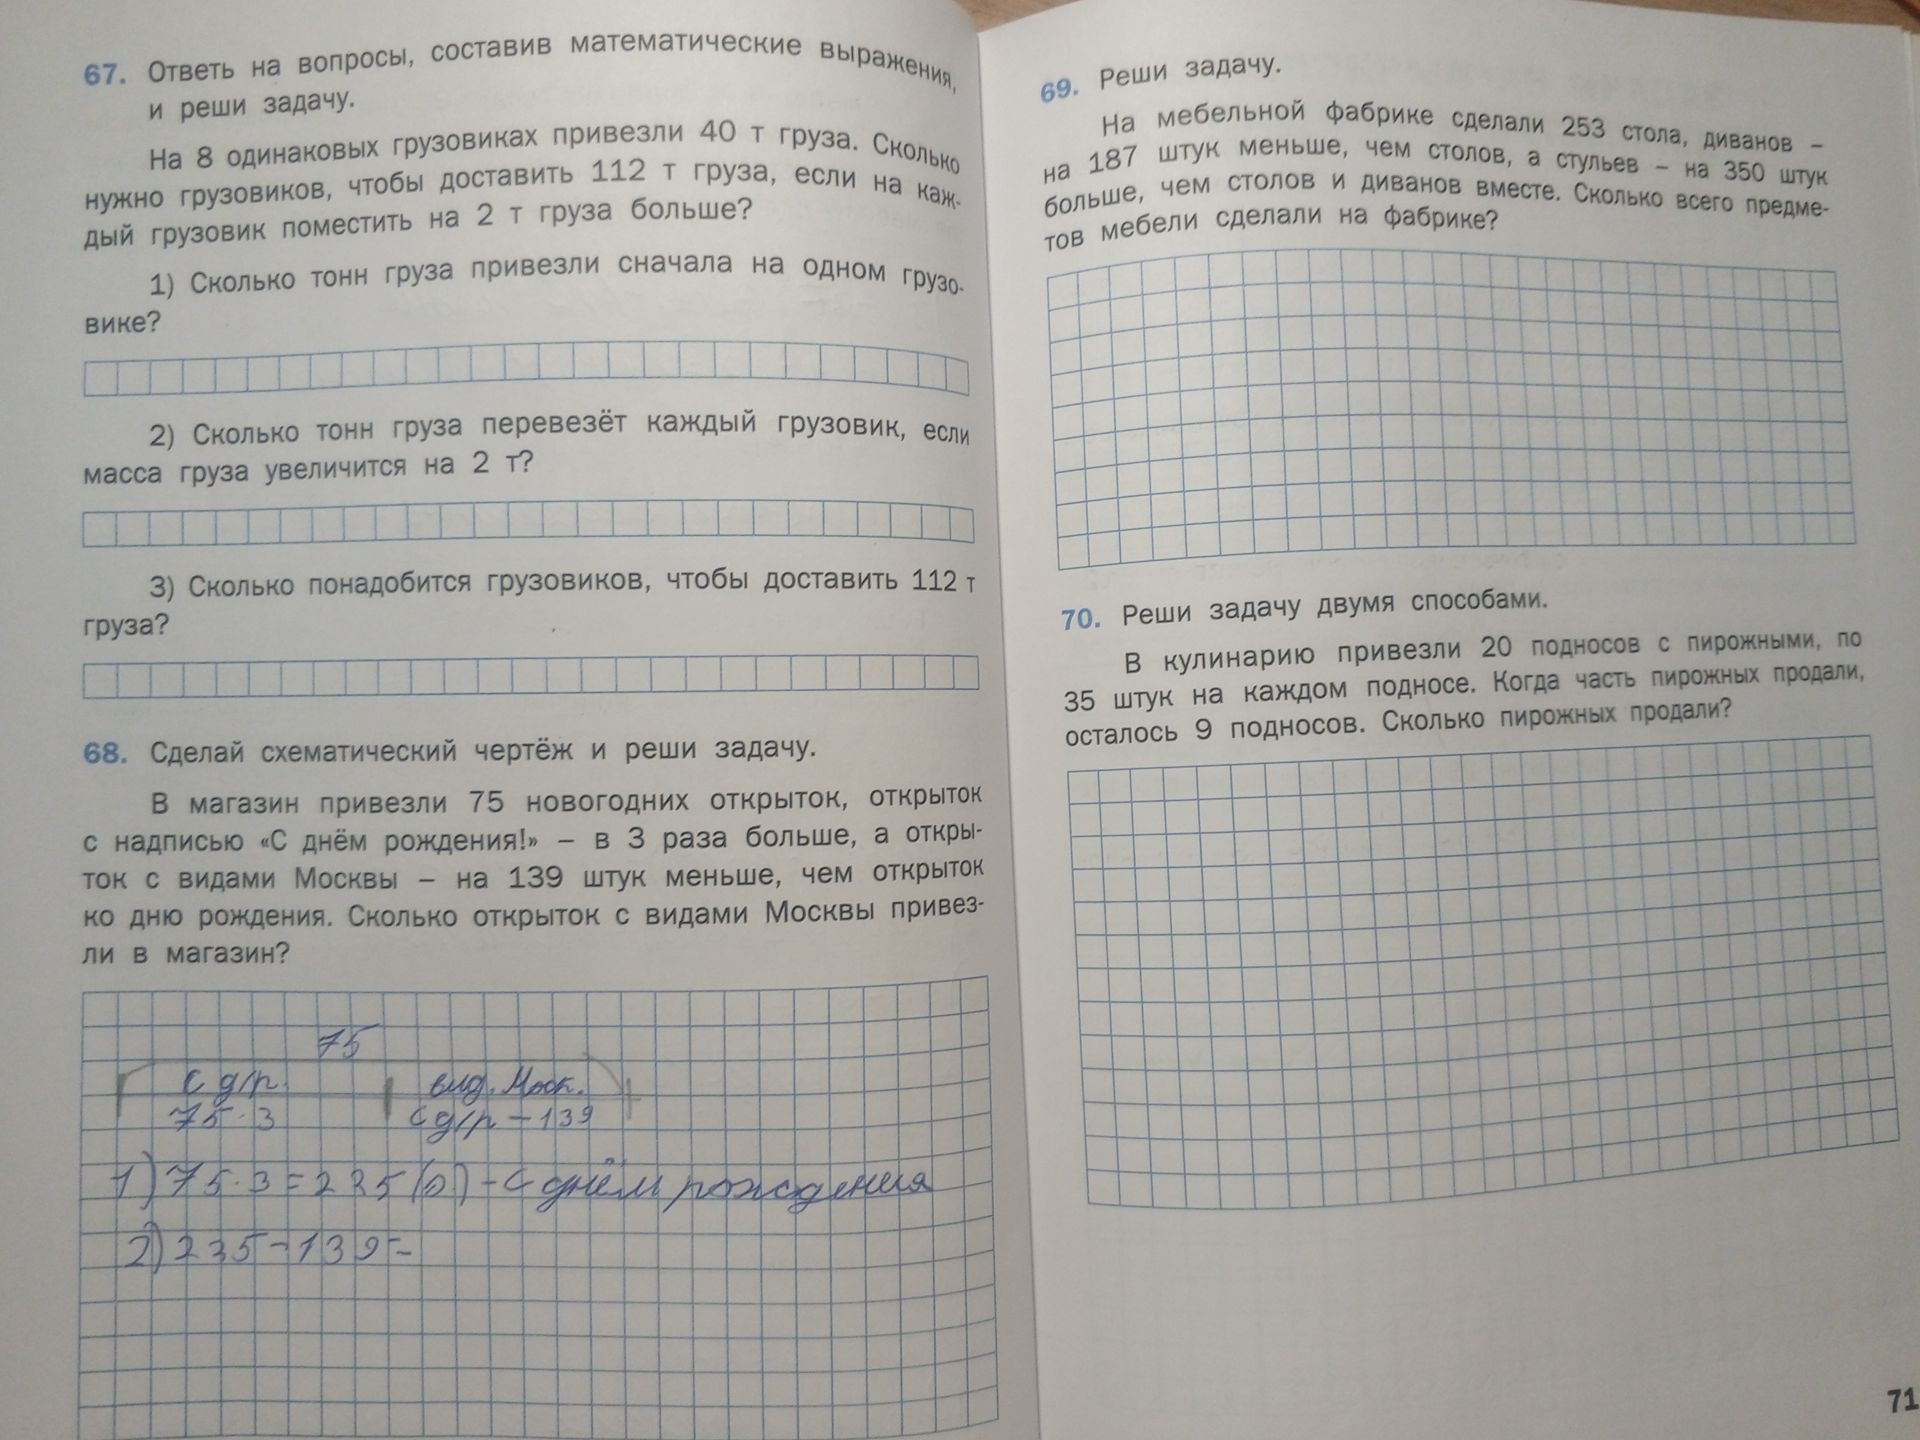 67. Ответь на вопросы, составив математические выражения,
и реши задачу.
На 8 одинаковых грузовиках привезли 40 т груза. Сколько
нужно грузовиков, чтобы доставить 112 т груза, если на каж-
дый грузовик поместить на 2 т груза больше?
1) Сколько тонн груза привезли сначала на одном грузо-
вике?
2) Сколько тонн груза перевезёт каждый грузовик, если
масса груза увеличится на 2 т?
3) Сколько понадобится грузовиков, чтобы доставить 112 т
груза?
68. Сделай схематический чертёж и реши задачу.
В магазин привезли 75 новогодних открыток, открыток
с надписью «С днём рождения!» – в 3 раза больше, а откры-
ток с видами Москвы – на 139 штук меньше, чем открыток
ко дню рождения. Сколько открыток с видами Москвы привез-
ли в магазин?
75
С д/р. вид. Моск.
75·3 С д/р – 139
1) 75·3=225(о) – С днём рождения
2) 235–139=
69. Реши задачу.
На мебельной фабрике сделали 253 стола, диванов –
на 187 штук меньше, чем столов, а стульев – на 350 штук
больше, чем столов и диванов вместе. Сколько всего предме-
тов мебели сделали на фабрике?
70. Реши задачу двумя способами.
В кулинарию привезли 20 подносов с пирожными, по
35 штук на каждом подносе. Когда часть пирожных продали,
осталось 9 подносов. Сколько пирожных продали?
71